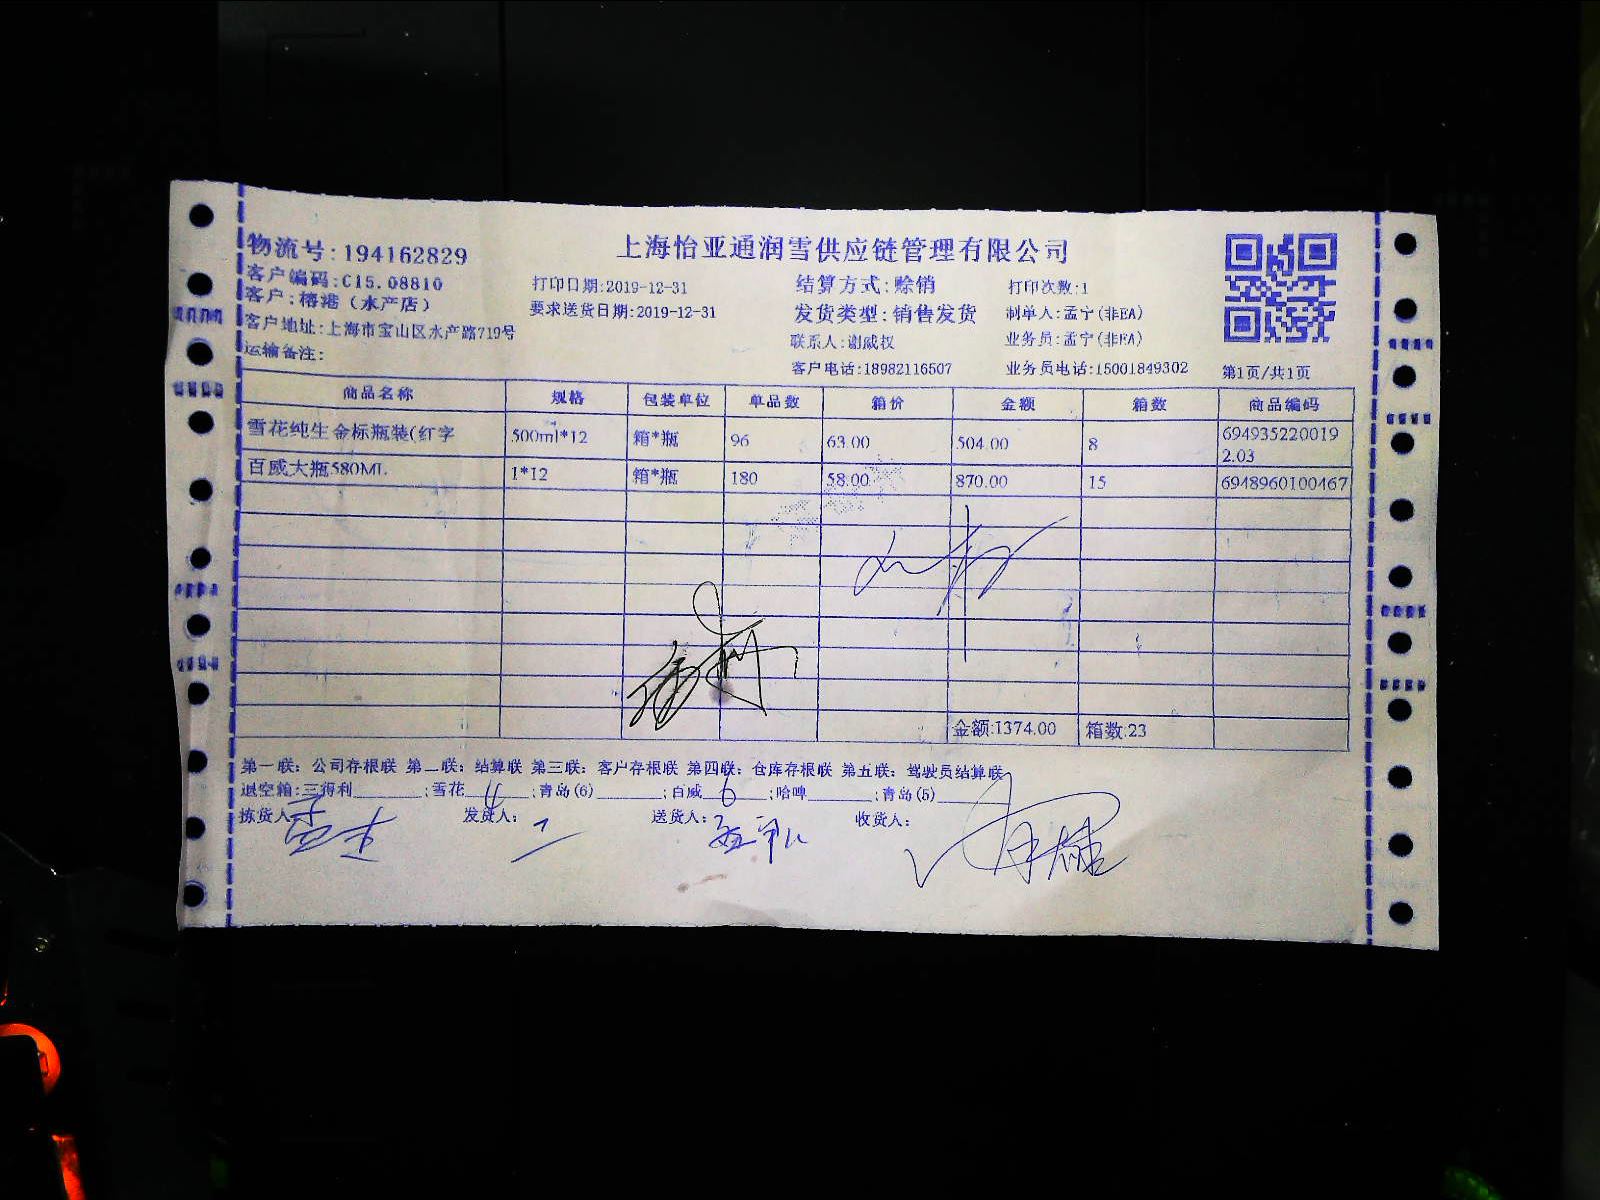 上海怡亚通润雪供应链管理有限公司
物流号:194162829
客户编码:C15.08810
打印日期:2019-12-31
结算方式:赊销
打印次数:1
客户:椿港(水产店)
要求送货日期:2019-12-31
发货类型:销售发货
制单人:孟宁(非EA)
客户地址:上海市宝山区水产路719号
联系人:谢威权
业务员:孟宁(非EA)
运输备注:
客户电话:18982116507
业务员电话:15001849302
第1页/共1页
商品名称 规格 包装单位 单品数 箱价 金额 箱数 商品编码
雪花纯生金标瓶装(红字 500ml*12 箱*瓶 96 63.00 504.00 8 694935220019
2.03
百威大瓶580ML 1*12 箱*瓶 180 58.00 870.00 15 6948960100467
金额:1374.00 箱数:23
第一联:公司存根联 第二联:结算联 第三联:客户存根联 第四联:仓库存根联 第五联:驾驶员结算联
退空箱:三得利______;雪花 4 ;青岛(6)______;百威 6 ;哈啤______;青岛(5)______
拣货人: 发货人: 送货人: 收货人: